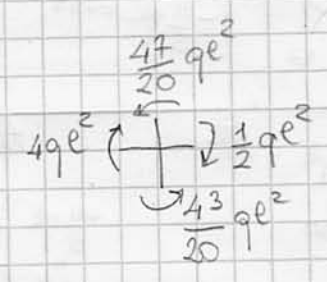 47/20 qℓ²
4qℓ² 1/2 qℓ²
43/20 qℓ²